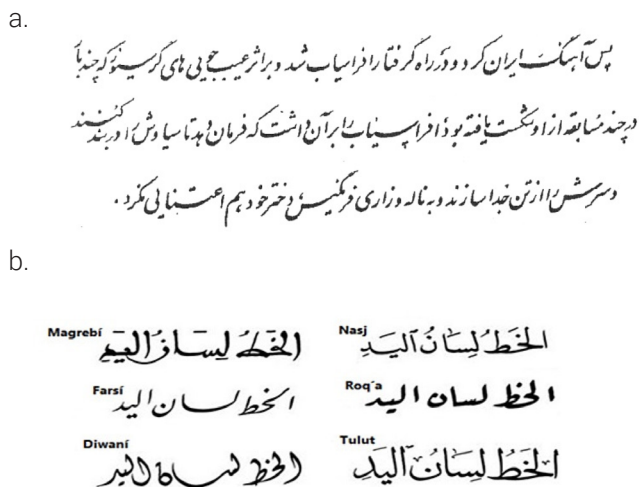 a.
پس آهنگ ایران کرد و در راه گرفتار افراسیاب شد و بر اثر عیب جویی های گرسیوز که چند بار
در چند مسابقه از او شکست یافته بود افراسیاب را بر آن داشت که فرمان دهد تا سیاوش را در بند کنند
و سرش را از تن جدا سازند و به ناله و زاری فرنگیس دختر خود هم اعتنایی نکرد .
b.
Magrebí الخط لسان اليد
Nasj الخَطُ لِسَانُ اليَدِ
Farsí الخط لسان اليد
Roq´a الخط لسان اليد
Diwaní الخط لسان اليد
Tulut الخَطُ لِسَانُ اليَدِ